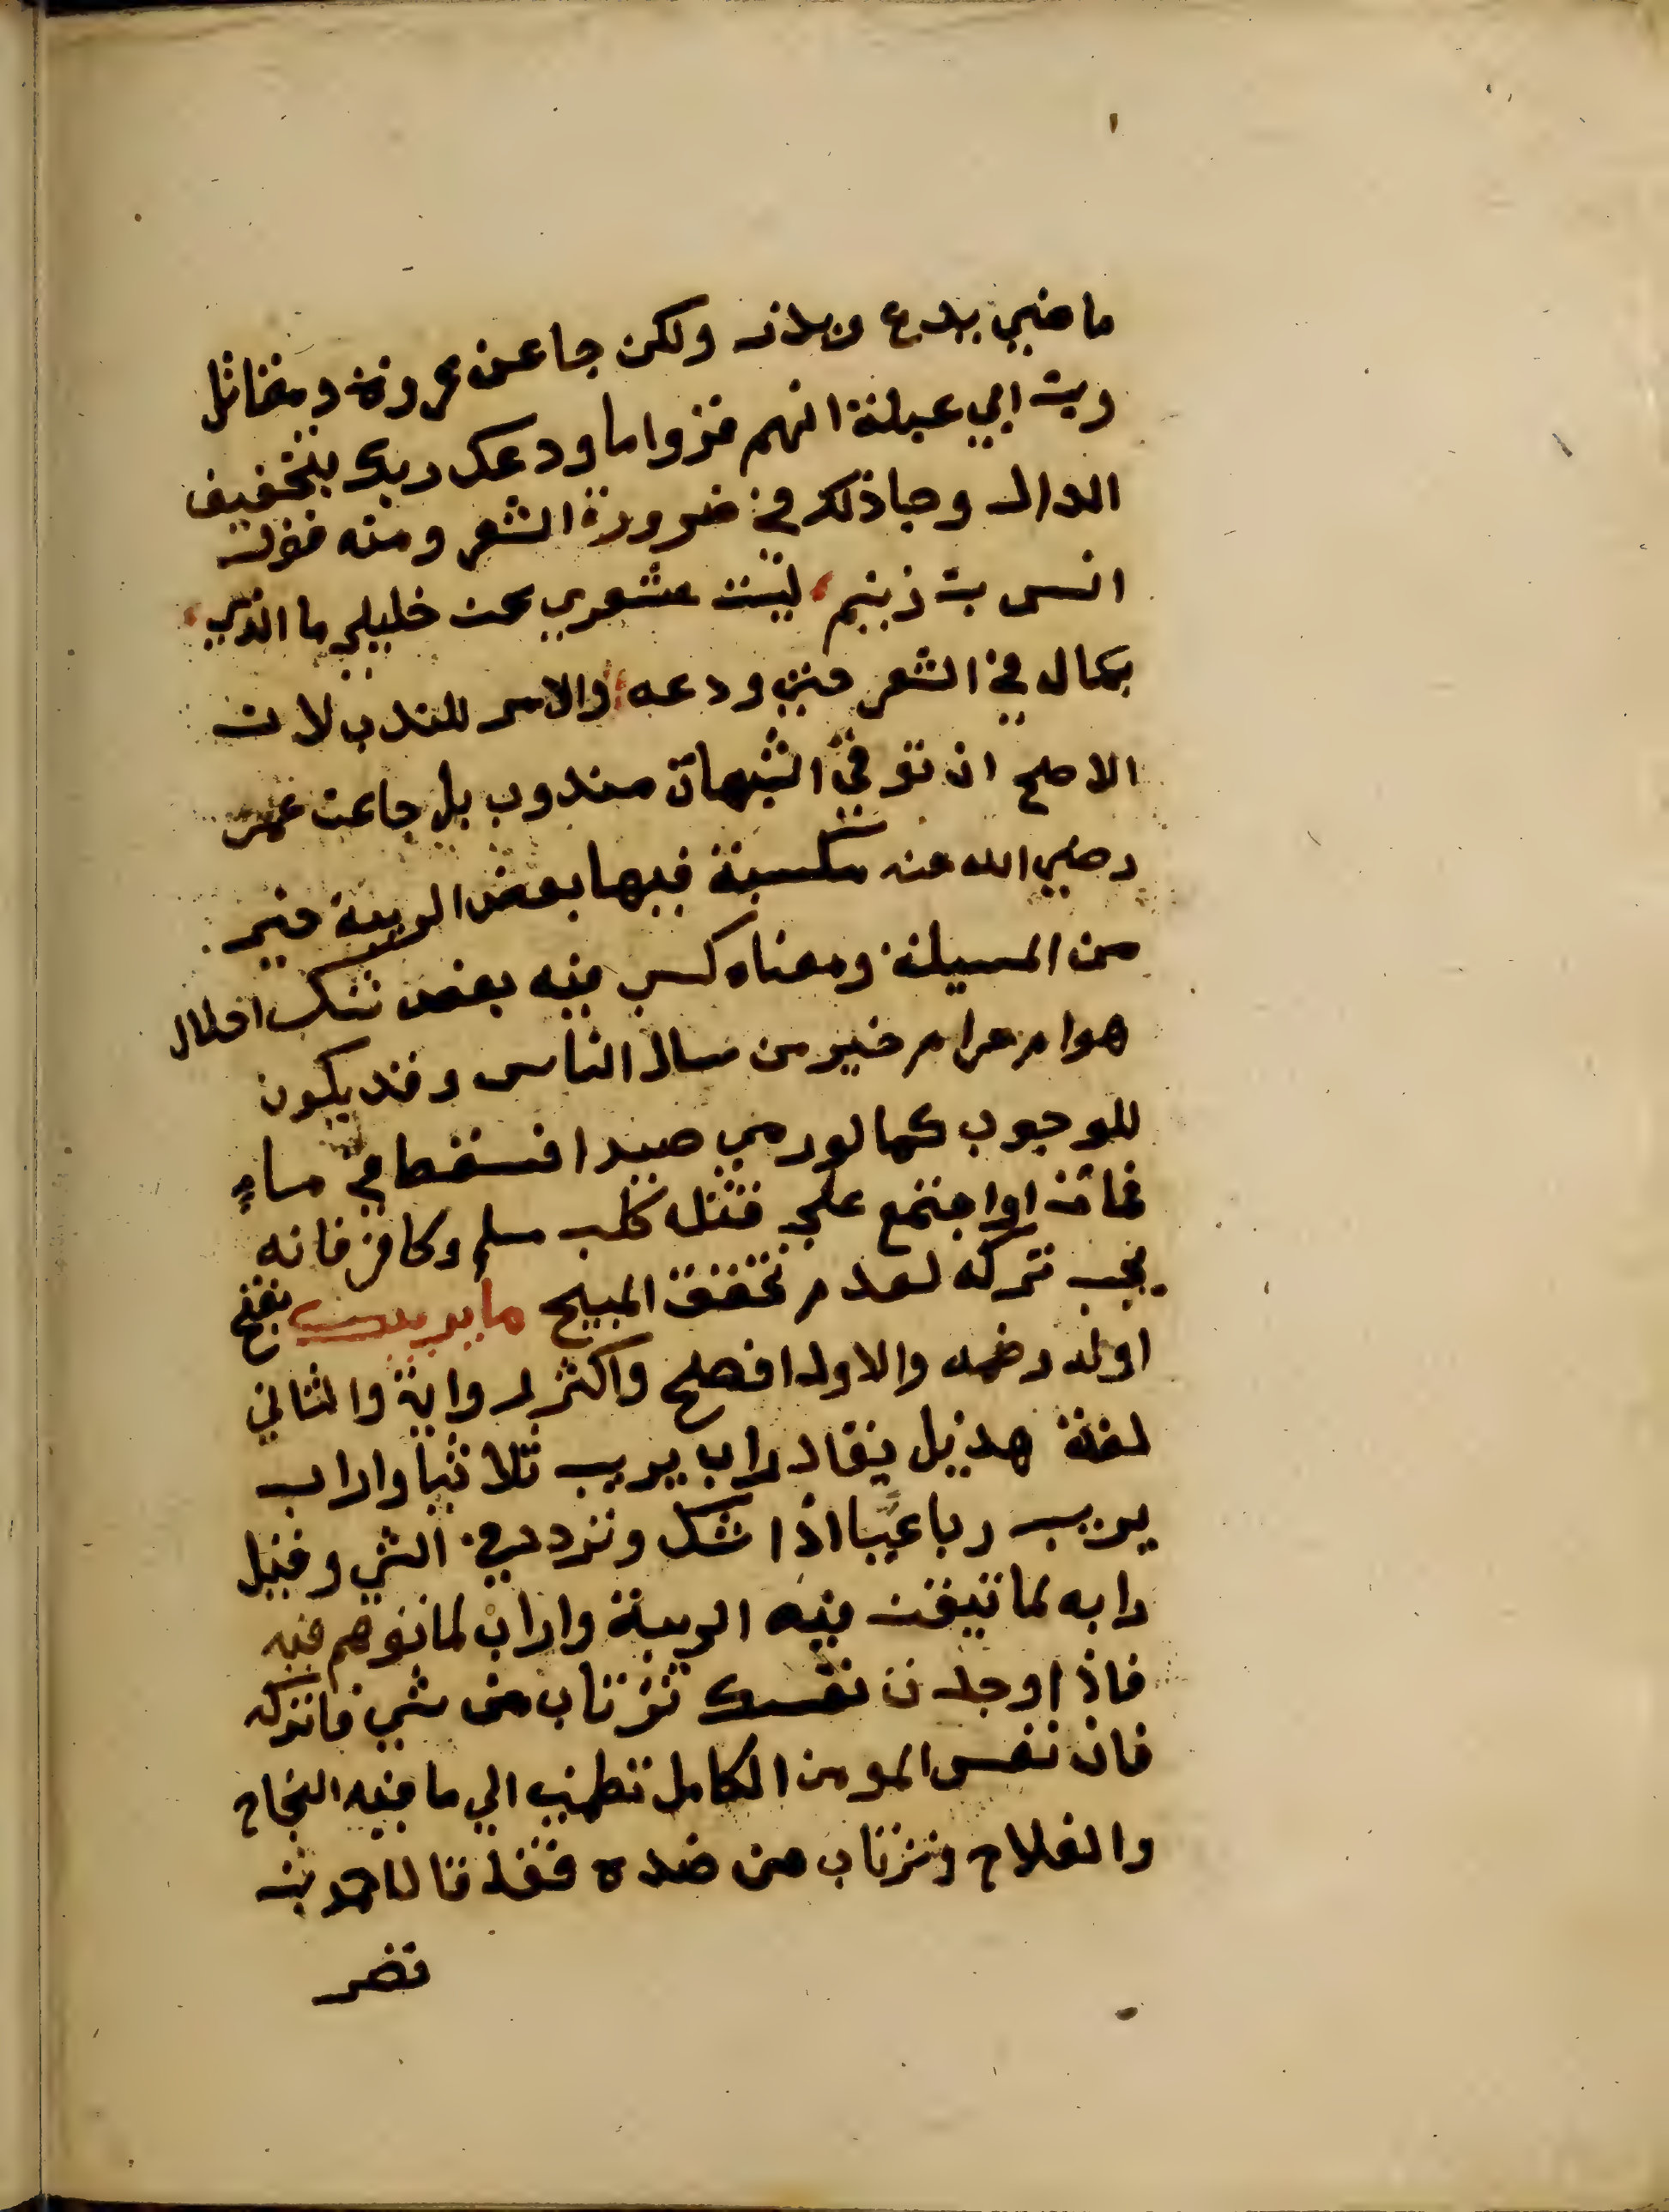 ماضي يدع ويذر ولكن جا عن عروة ومقاتل
وبن ابي عبلة انهم قروا ما ودعك ربك بتخفيف
الدال وجا ذلك في ضرورة الشعر ومنه قول
انس بن زنيم ليت شعري عن خليلي ما الذي
في الشعر حتى ودعه والامر للندب لان
الاصح ان توقي الشبهات مندوب بل جا عن عمر
رضي الله عنه مكسبة فيها بعض الريبة خير
من المسيلة ومعناه كسب فيه بعض شك احلال
هو ام حرام خير من سال الناس وقد يكون
للوجوب كما لو رمي صيدا فسقط في ماء
فمات او اجتمع علي قتله كلب مسلم وكافر فانه
يجب تركه لعدم تحقق المبيح ما يريبك بفتح
اوله وضمه والاول افصح واكثر رواية والثاني
لغة هذيل يقال راب يريب ثلاثيا واراب
يريب رباعيا اذا شك وتردد في الشي وقيل
رابه لما تيقن فيه الريبة واراب لما توهم فيه
فاذا وجدت نفسك ترتاب من شي فاتركه
فان نفس المومن الكامل تطمئن الي ما فيه النجاح
والفلاح وترتاب من ضده فقد قال